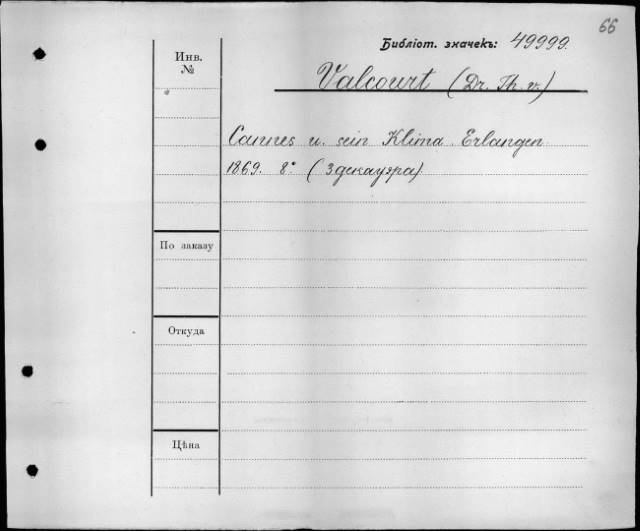 66
Библіот. значекъ: 49999.
Инв.
№
Valcourt (Dr. Th. v.)
Cannes u. sein Klima. Erlangen.
1869. 8° (Здекауэра)
По заказу
Откуда
Цѣна